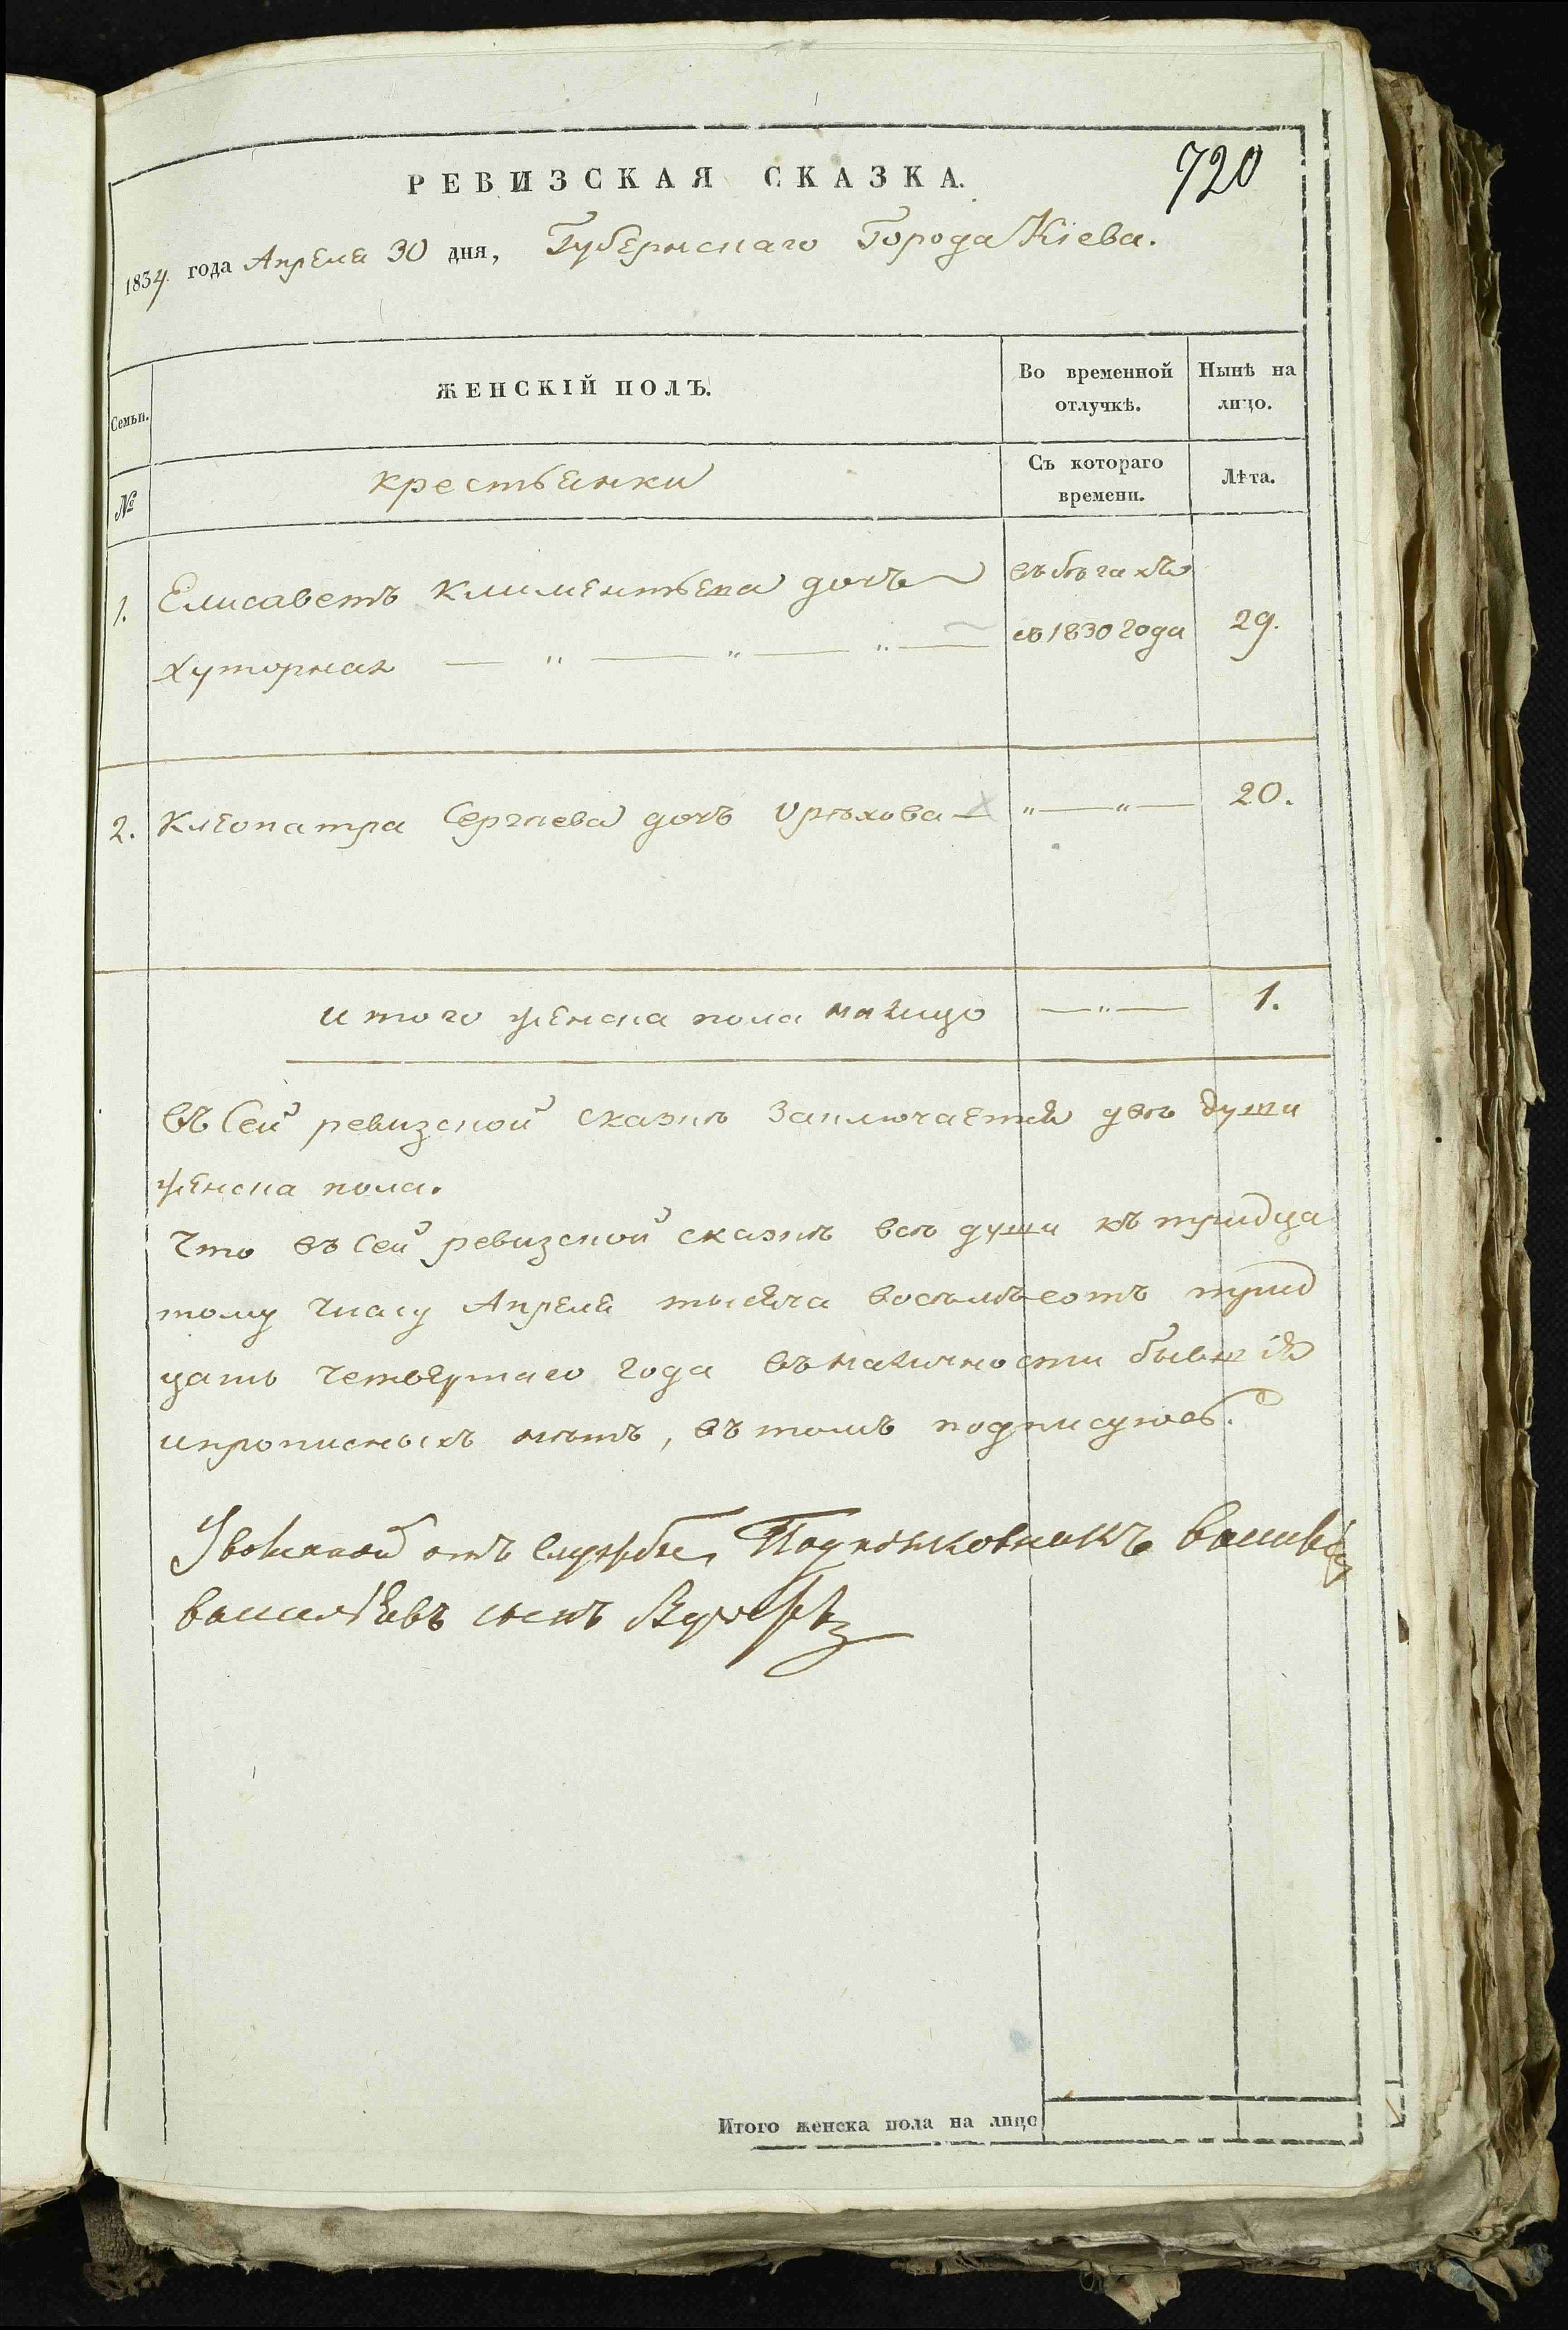 720
РЕВИЗСКАЯ СКАЗКА.
1834 года Апреля 30 дня, Губернскаго Города Кіева.
Семьи. ЖЕНСКІЙ ПОЛЪ. Во временной отлучкѣ. Нынѣ на лицо.
№ крестьянки Съ котораго времени. Лѣта.
1. Елисаветъ Климентьева дочь въ бѣгахъ
Хуторная — " — " — " — съ 1830 года 29.
2. Клеопатра Сергѣева дочь Орѣхова — " — " — 20.
итого женска пола налицо — " — 1.
Въ Сей ревизской сказкѣ Заключается двѣ души
женска пола.
Что въ Сей ревизской сказкѣ всѣ души къ тридца
тому числу Апреля тысяча восемьсотъ трид
цать четвертаго года въ наличности бывшія
и прописныхъ нѣтъ, въ томъ подписуюсь.
отъ службы Подполковникъ Василій
Васильевъ сынъ
Итого женска пола на лицо